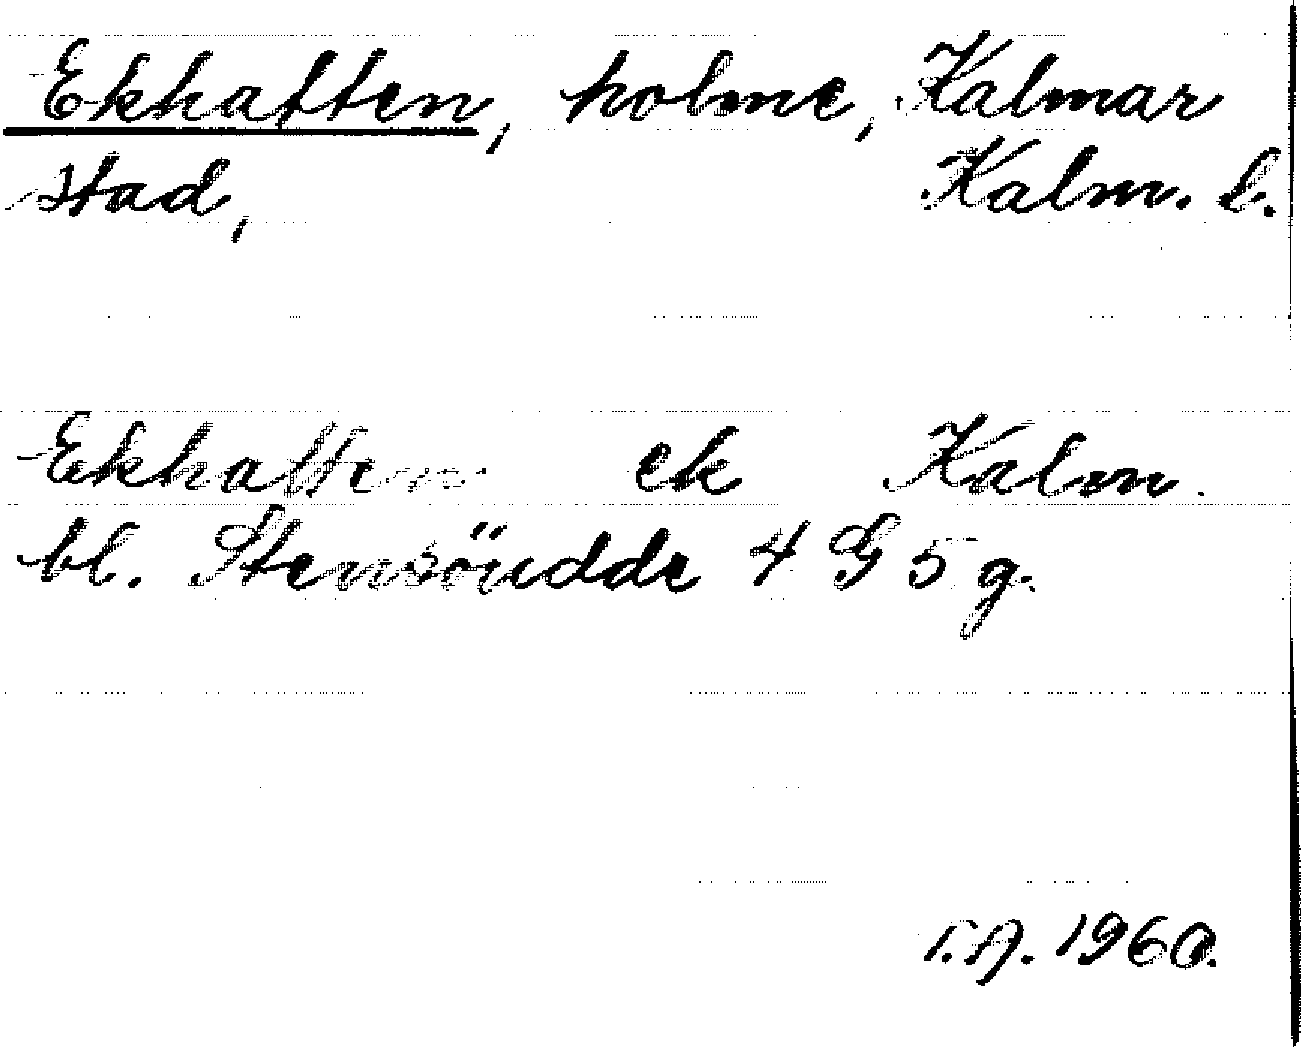 Ekhatten, holme, Kalmar
stad, Kalm. l.
Ekhatten ek Kalm.
bl. Stensöudde 4 G 5 g.
T.A. 1960.